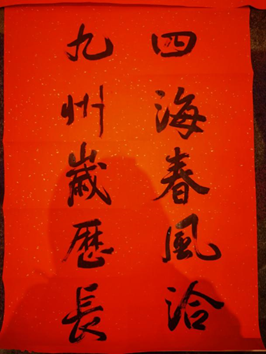 四海春風洽
九州歲歷長